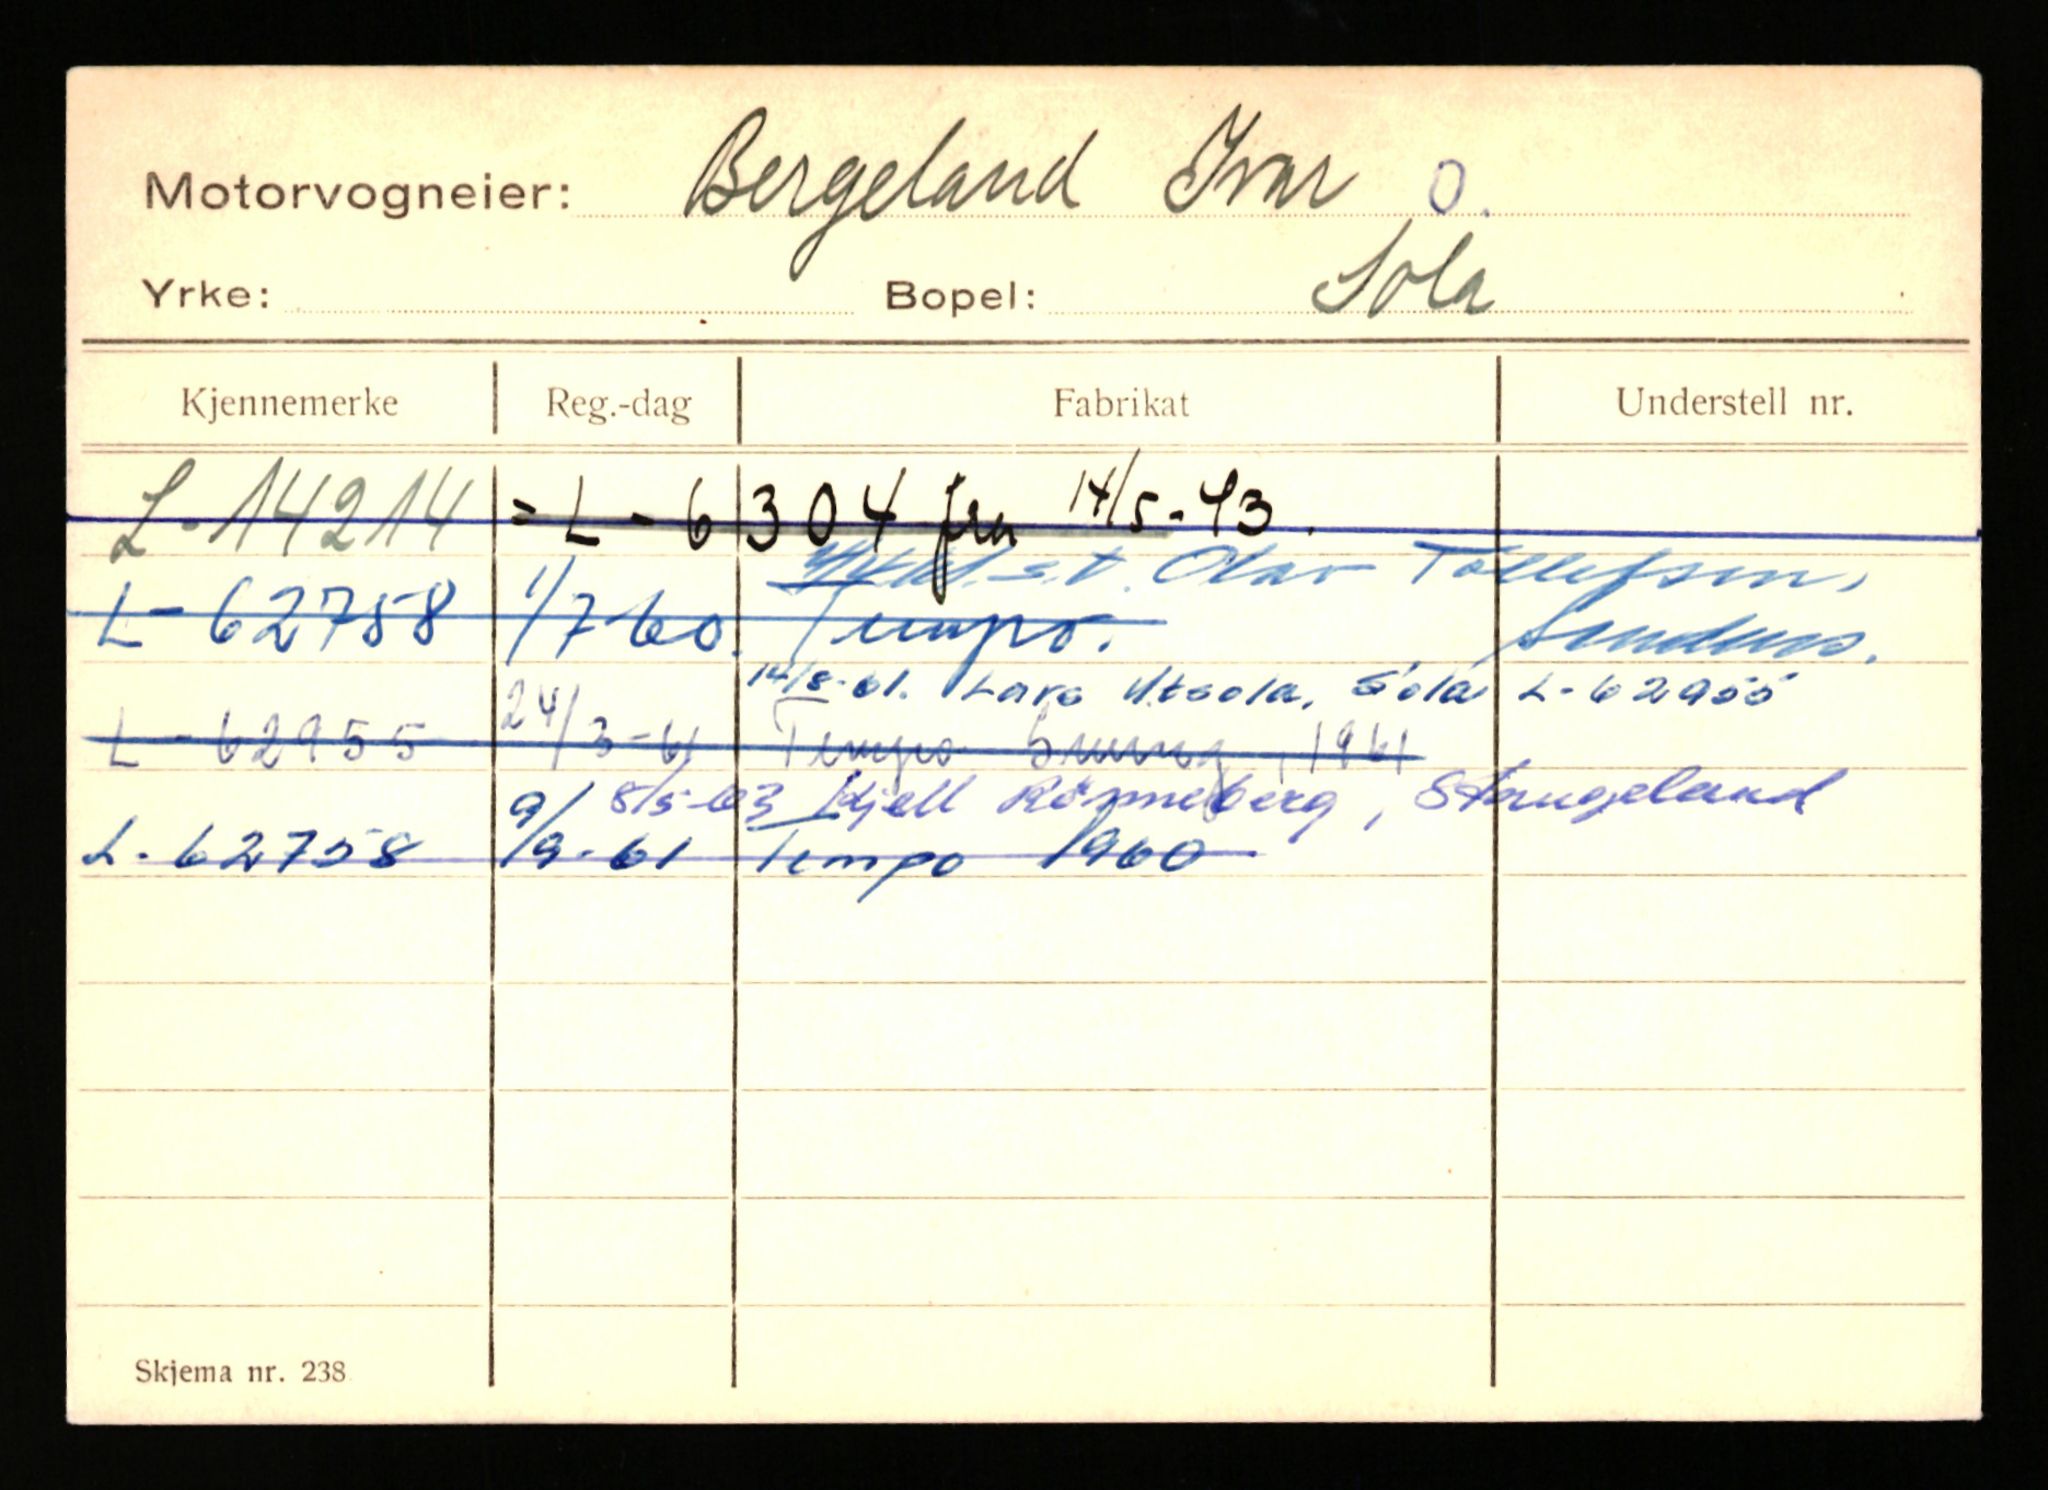 Motorvogneier: Bergeland Ivar O.
Yrke: Bopel: Sola
Kjennemerke Reg.-dag Fabrikat Understell nr.
L-14214 = L-6304 fra 14/5-43.
s.t. Olav Tollefsen,
L-62758 1/7 60. Tempo.
14/8-61. Lars Utsola, Sola L-62955
L-62955 24/3-61 Tempo 1961
8/5-63 Kjell Rönneberg, Stangeland
L-62758 9/9-61 Tempo 1960
Skjema nr. 238